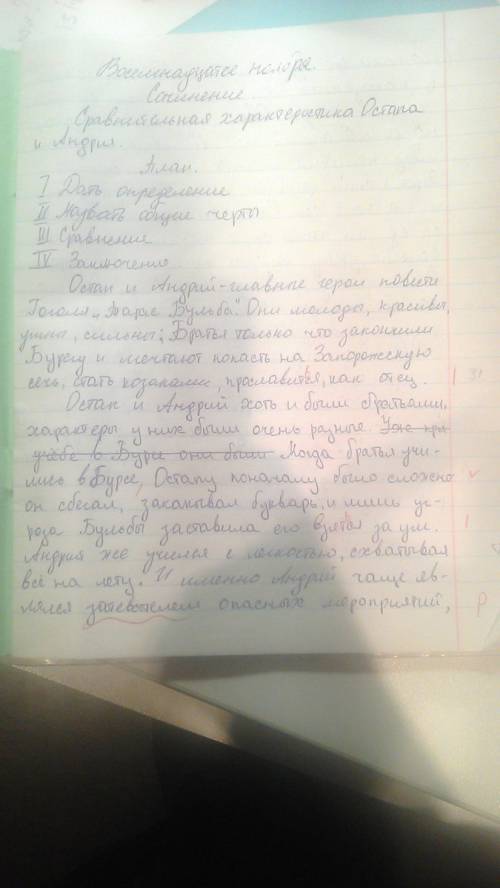 Восемнадцатое ноября.
Сочинение.
Сравнительная характеристика Остапа
и Андрия.
План.
I Дать определение
II Назвать общие черты
III Сравнение
IV Заключение
Остап и Андрий - главные герои повести
Гоголя „Тарас Бульба". Они молоды, красивы,
умны, сильны; Братья только что закончили
Бурсу и мечтают попасть на Запорожскую
сечь, стать козаками, прославиться, как отец.
Остап и Андрий хоть и были братьями,
характеры у них были очень разные. Уже при
учёбе в Бурсе они были Когда братья учи-
лись в Бурсе, Остапу поначалу было сложно
он сбегал, закапывал букварь, и лишь уг-
роза Бульбы заставила его взяться за ум.
Андрий же учился с лёгкостью, схватывая
всё на лету. И именно Андрий чаще яв-
лялся затевателем опасных мероприятий,